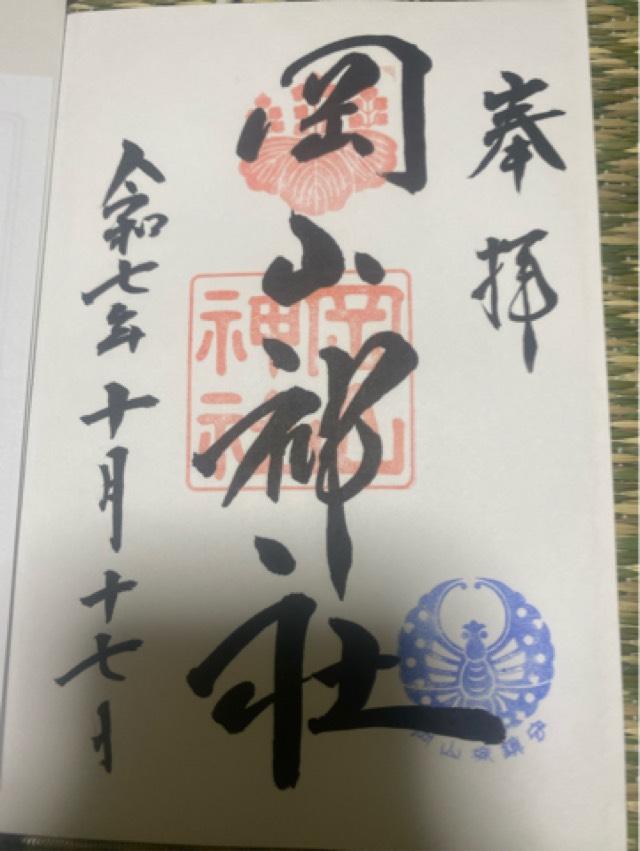 奉拝
岡山神社
岡山神社
令和七年十月十七日
岡山城鎮守